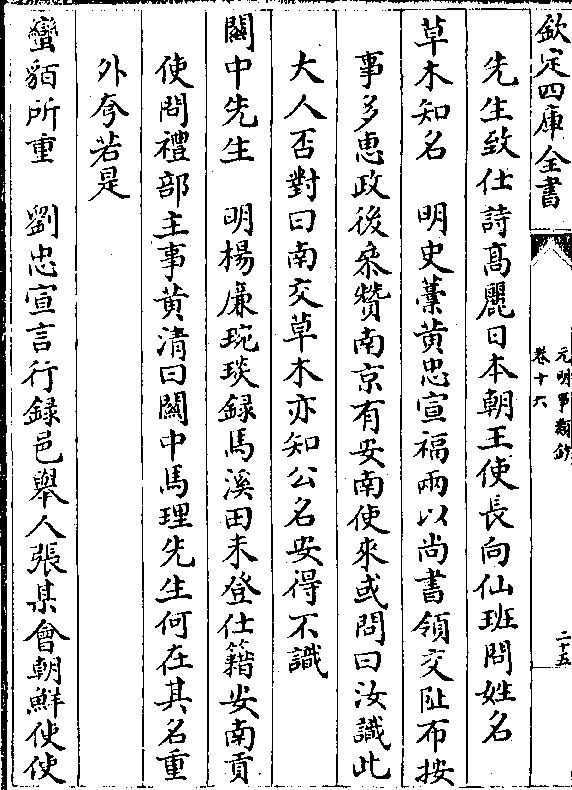 欽定四庫全書
元明事類鈔
卷十六
二十五
先生致仕詩高麗日本朝王使長向仙班問姓名
草木知名　明史藁黄忠宣福兩以尚書領交阯布按
事多惠政後叅贊南京有安南使來或問曰汝識此
大人否對曰南交草木亦知公名安得不識
關中先生　明楊廉琬琰録馬溪田未登仕籍安南貢
使問禮部主事黄清曰關中馬理先生何在其名重
外夸若是
蠻貊所重　劉忠宣言行録邑舉人張某會朝鮮使使